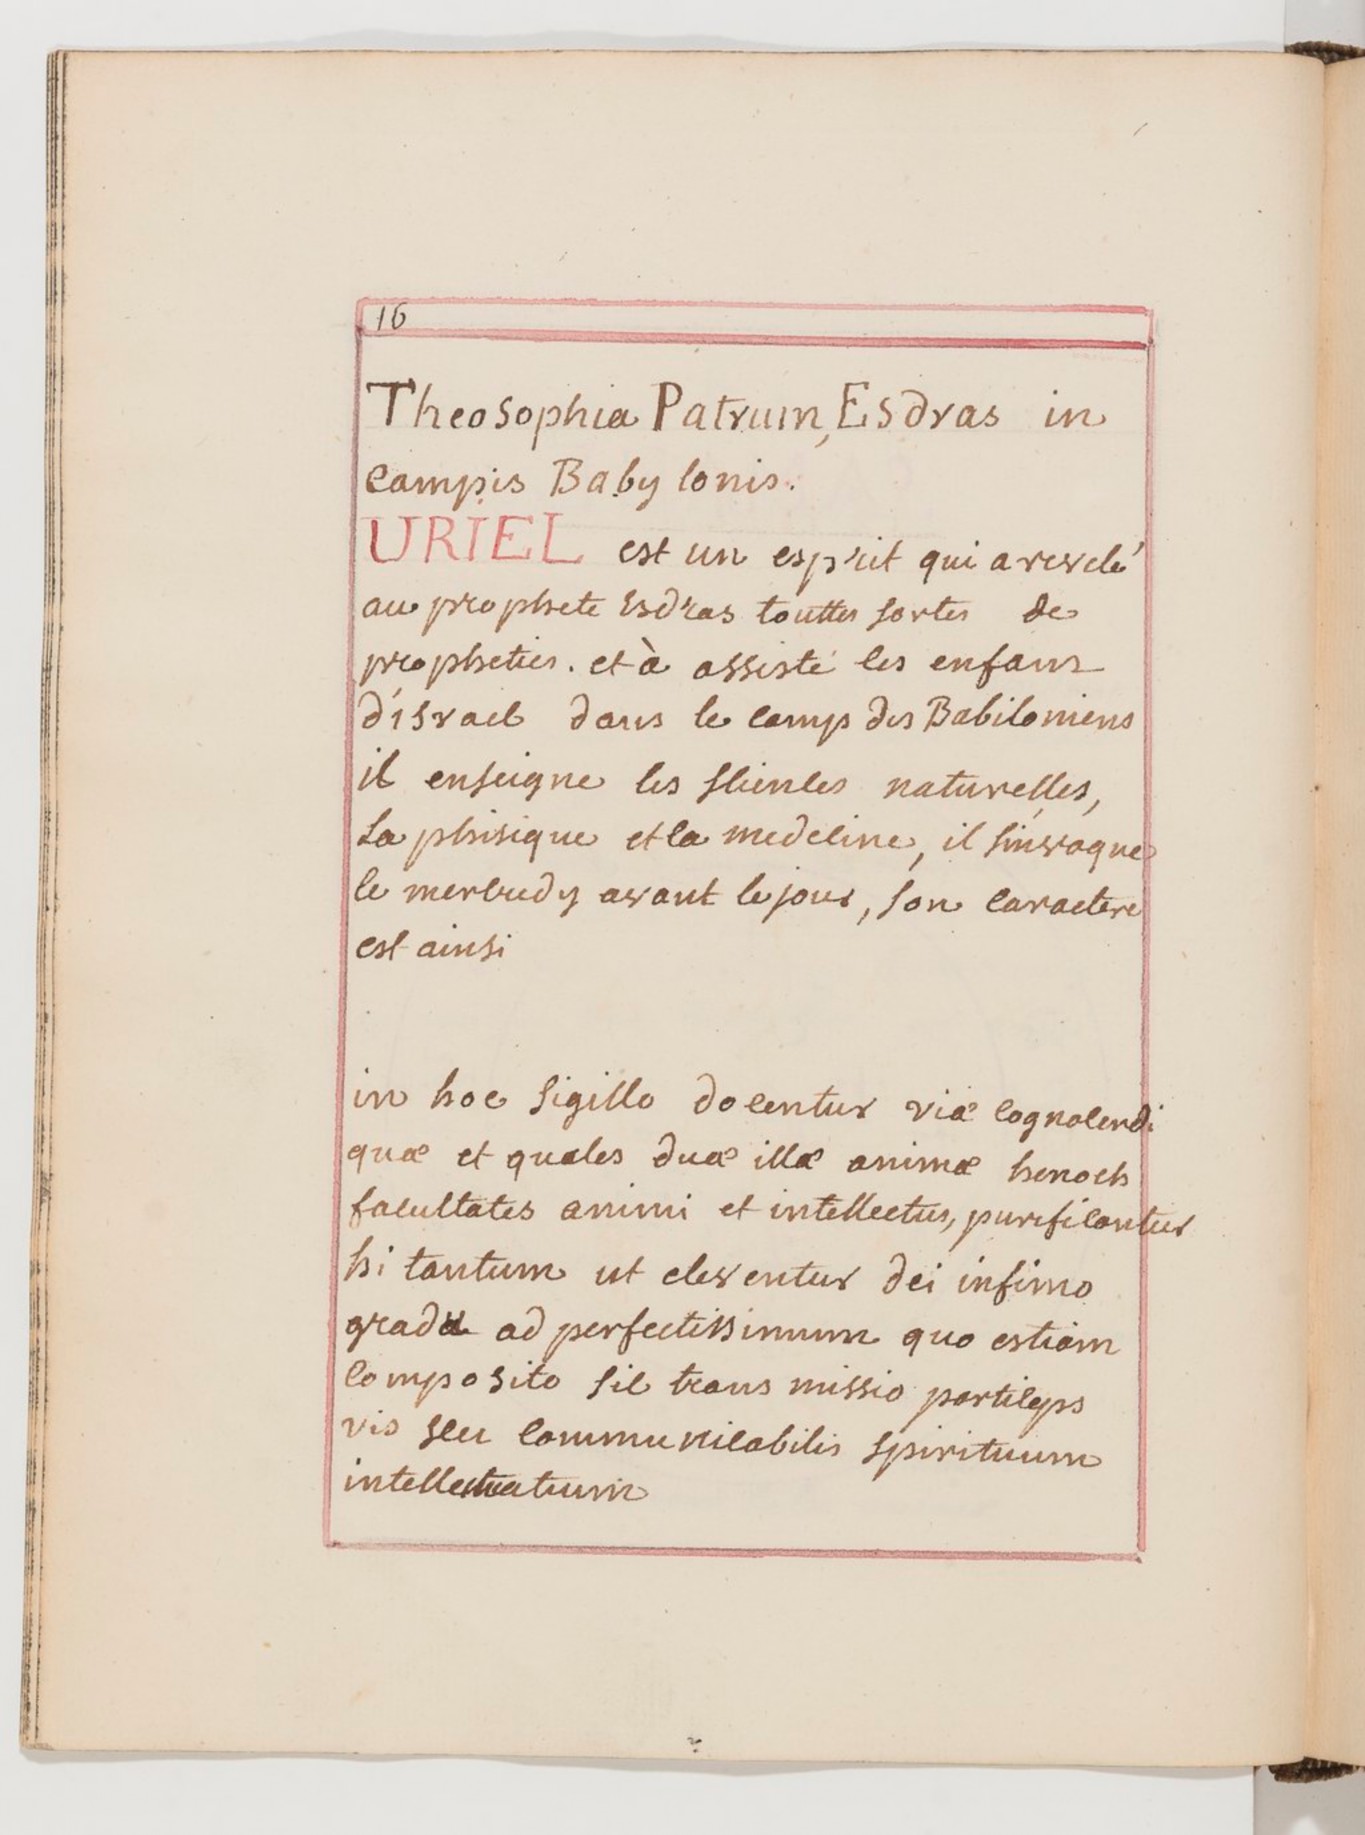 16
Theosophia Patrum, Esdras in
campis Babylonis.
URIEL est un esprit qui a revelé
au prophete Esdras touttes sortes de
propheties. et à assisté les enfans
d'israel dans le camp des Babiloniens
il enseigne les sciences naturelles,
la phisique et la medecine, il s'invoque
le mercredy avant le jour, son caractere
est ainsi
in hoc sigillo docentur viæ cognoscendi
quæ et quales duæ illæ animæ henoch
facultates animi et intellectus, purificantur
hi tantum ut eleventur dei infimo
gradu ad perfectissimum quo estiam
composito sic trans missio particeps
vis seu communicabilis spirituum
intellectuatuum